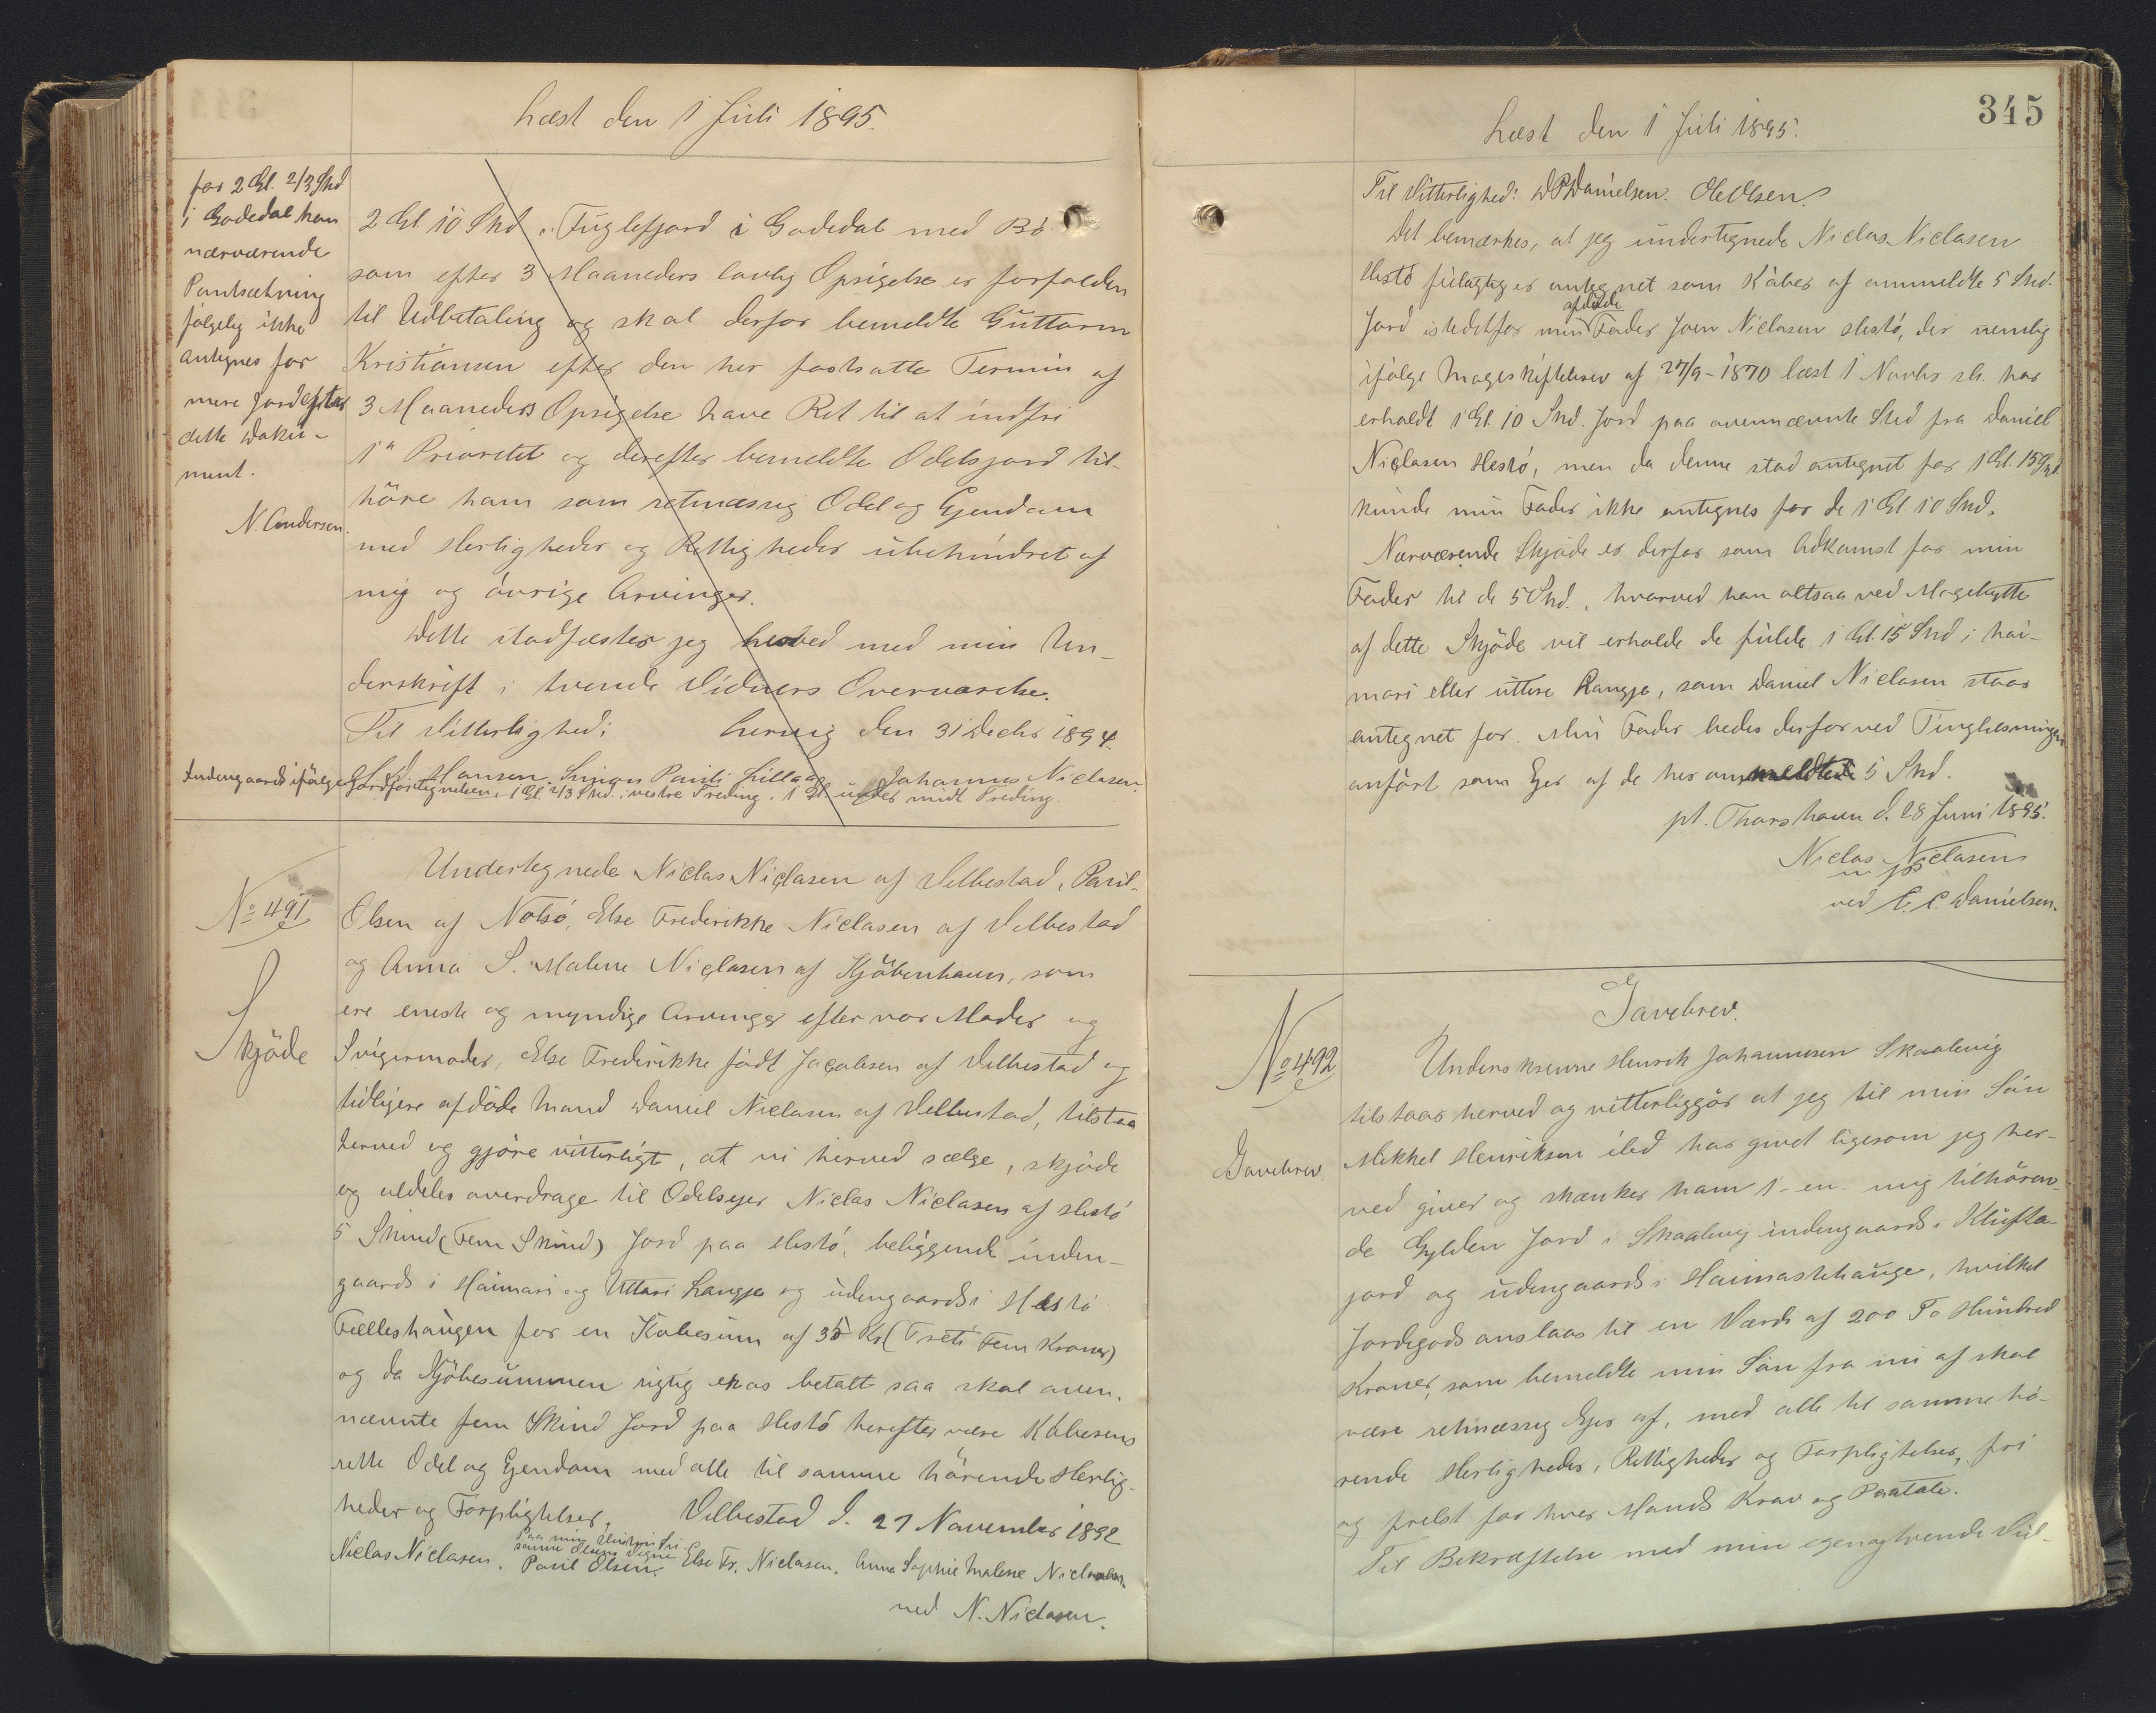 Læst den 1 Juli 1895.
for 2 Gl. 2/3 Skd
i Gadedal kan
nærværende
Pantsætning
følgelig ikke
antegnes for
mere Jord efter
dette Doku-
ment.
N. Andersen.
2 Gl. 10 Skd i Fuglefjord i Gadedal med Bö
som efter 3 Maaneders lovlig Opsigelse er forfalden
til Udbetaling og skal derfor bemeldte Guttorm
Kristiansen efter den her fastsatte Termin af
3 Maaneders Opsigelse have Ret til at indfri
1ste Prioritet og derefter bemeldte Odelsjord til-
höre ham som retmæssig Odel og Ejendom
med Herligheder og Rettigheder ubehindret af
mig og övrige Arvinger.
Dette stadfæster jeg herved med min Un-
derskrift i tvende Vidners Overværelse.
Til Vitterlighed: Lervig den 31 Decbr 1894.
Hansen. Simon Pauli Lillaa Johannes Niclasen.
Indengaards ifølge Jordfortegnelsen, 1 Gl. 2/3 Skd. i vestre Treding. 1 Gl. under midt Treding.
No 491
Skjöde
Undertegnede Niclas Niclasen af Velbestad, Paul
Olsen af Nolsö, Else Frederikke Niclasen af Velbestad
og Anna S. Malene Niclasen af Kjöbenhavn, som
ere eneste og myndige Arvinger efter vor Moder og
Svigermoder, Else Frederikke födt Jacobsen af Velbestad og
tidligere afdöde Mand Daniel Niclasen af Velbestad, tilstaa
herved og gjöre vitterligt, at vi herved sælge, skjöde
og aldeles overdrage til Odelsejer Niclas Niclasen af Hestö
5 Skind (Fem Skind) Jord paa Hestö, beliggende inden-
gaards i Haimari og Uttari Rangje og udengaards i Hestö
Fælleshaugen for en Kobesum af 35 Kr (Treti Fem Kroner)
og da Kjöbesummen rigtig er os betalt saa skal oven-
nævnte fem Skind Jord paa Hestö herefter være Köberens
rette Odel og Ejendom med alle til samme hörende Herlig-
heder og Forpligtelser. Velbestad d. 27 November 1892
Paa min Hustrus
samme Olsens Vegne
Niclas Niclasen. Paul Olsen. Else Fr. Niclasen. Anna Sophie Malene Niclasen
ved N. Niclasen.
345
Læst den 1 Juli 1895.
Til Vitterlighed: D P Danielsen. Ole Olsen.
Det bemærkes, at jeg undertegnede Niclas Niclasen
Hestö feilagtig er antegnet som Köber af anmeldte 5 Skd.
afdöde
Jord istedetfor min Fader Joen Niclasen Hestö, der nemlig
ifölge Mageskiftebrev af 27/9-1870 læst 1 Novbr s.A. har
erholdt 1 Gl. 10 Skd. Jord paa ovennævnte Sted fra Daniel
Niclasen Hestö, men da denne stod antegnet for 1 Gl. 15 Skd
kunde min Fader ikke antegnes for de 1 Gl. 10 Skd.
Nærværende Skjöde er derfor som Adkomst for min
Fader til de 5 Skd., hvorved han altsaa ved Magebytte
af dette Skjöde vil erholde de fulde 1 Gl. 15 Skd i Hai-
mari eller uttere Rangje, som Daniel Niclasen staar
antegnet for. Min Fader bedes derfor ved Tinglæsningen
anfört som Ejer af de her ommeldte 5 Skd.
pt. Thorshavn d. 28 Juni 1895.
Niclas Niclasen
m. f. P.
ved C. C. Danielsen.
No 492
Gavebrev.
Gavebrev.
Underskrevne Henrik Johannesen Skaalevig
tilstaar herved og vitterliggör at jeg til min Sön
Mikkel Henriksen ibd har givet ligesom jeg her-
ved giver og skænker ham 1 - en - mig tilhören-
de Gylden Jord i Skaalevig indengaards i Klufta-
jord og udengaards i Haimastehauge, hvilket
Jordegods anslaas til en Værdi af 200 To Hundred
Kroner, som bemeldte min Sön fra nu af skal
være retmæssig Ejer af, med alle til samme hö-
rende Herligheder, Rettigheder og Forpligtelser, fri
og frelst for hver Mands Krav og Paatale.
Til Bekræftelse med min egen og tvende Vid-